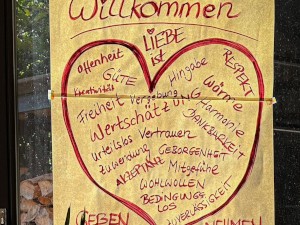 Willkommen
LIEBE
IST
Offenheit
GÜTE
Hingabe
RESPEKT
Kreativität
Wärme
Freiheit Vergebung
Harmonie
Wertschätzung
DANKBARKEIT
urteilslos Vertrauen
Zuwendung GEBORGENHEIT
AKZEPTANZ Mitgefühl
WOHLWOLLEN
BEDINGUNGS-
LOS
ZUVERLÄSSIGKEIT
GEBEN
NEHMEN